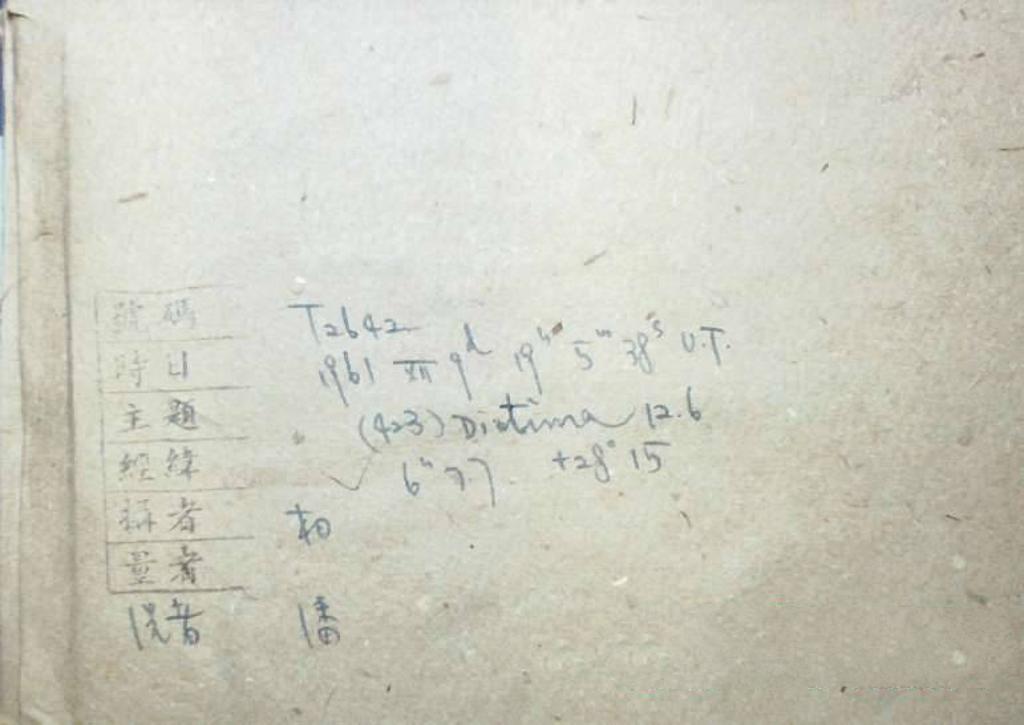 號碼 T2642
時日 1961 XII 9d 19h 5m 38s U.T.
主題 (423) Diotima 12.6
經緯 6h 7.7 +28° 15
攝者
量者
洗者 潘